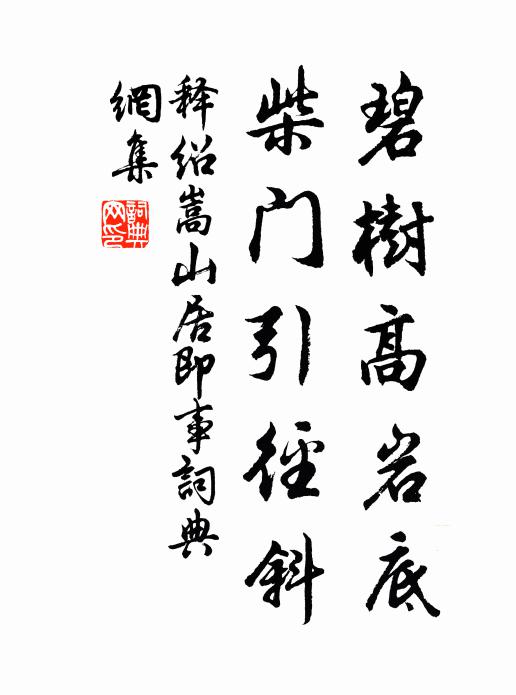 碧樹高岩底
柴門引徑斜
释紹嵩山居即事詞典
網集
詞典
网印